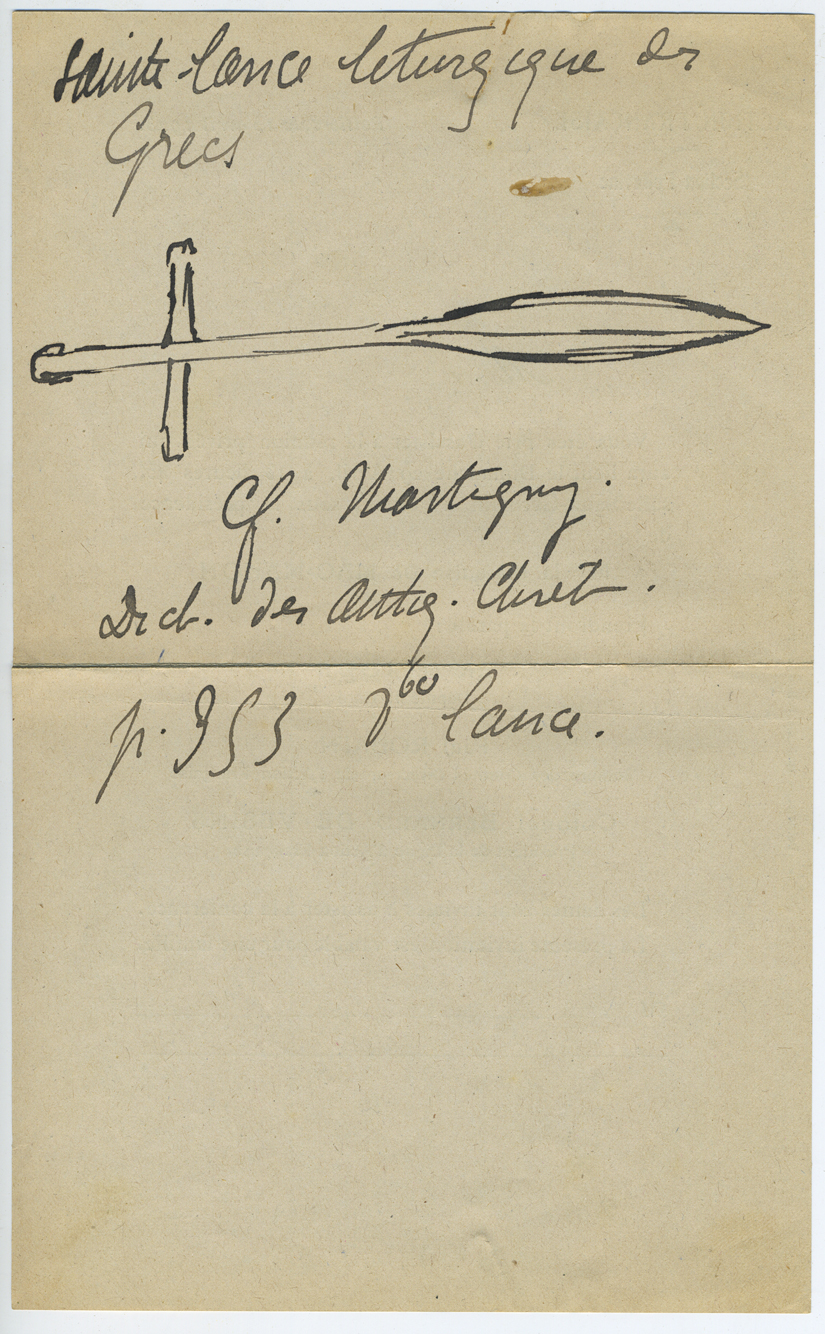 Sainte lance liturgique des
Grecs
Cf. Martigny.
Dict. des Antiq. Chret.
p. 353 Vbo lance.